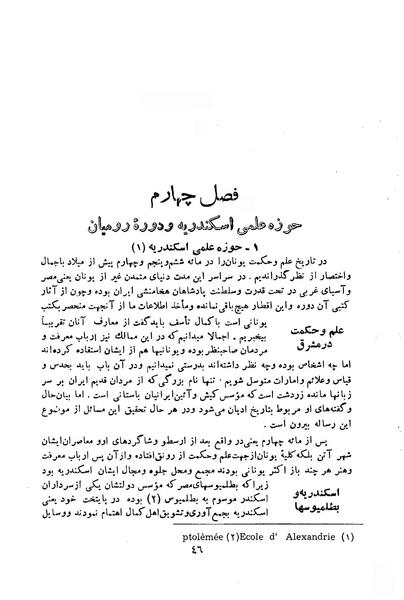 فصل چهارم
حوزه علمی اسکندریه و دورهٔ رومیان
۱ ـ حوزه علمی اسکندریه (۱)
در تاریخ علم و حکمت یونان را در مائه ششم و پنجم و چهارم پیش از میلاد باجمال
و اختصار از نظر گذراندیم . در سراسر این مدت دنیای متمدن غیر از یونان یعنی مصر
و آسیای غربی در تحت قدرت و سلطنت پادشاهان هخامنشی ایران بوده و چون از آثار
کتبی آن دوره و این اقطار هیچ باقی نمانده و مأخذ اطلاعات ما از آنجهت منحصر بکتب
علم و حکمت
در مشرق
یونانی است با کمال تأسف باید گفت از معارف آنان تقریباً
بیخبریم . اجمالا میدانیم که در این ممالک نیز ارباب معرفت و
مردمان صاحبنظر بوده و یونانیها هم از ایشان استفاده کرده‌اند
اما چه اشخاص بوده و چه نظر داشته‌اند بدرستی نمیدانیم و در آن باب باید بحدس و
قیاس و علائم و امارات متوسل شویم . تنها نام بزرگی که از مردان قدیم ایران بر سر
زبانها مانده زردشت است که مؤسس کیش و آئین ایرانیان باستانی است . اما بیان حال
و گفته‌های او مربوط بتاریخ ادیان می‌شود و در هر حال تحقیق این مسائل از موضوع
این رساله بیرون است .
پس از مائه چهارم یعنی در واقع بعد از ارسطو و شاگردهای او و معاصران ایشان
شهر آتن بلکه کلیهٔ یونان از جهت علم و حکمت از رونق افتاده و از آن پس ارباب معرفت
و هنر هر چند باز اکثر یونانی بودند مجمع و محل جلوه و مجال ایشان اسکندریه بود
اسکندریه و
بطلمیوسها
زیرا که بطلمیوسهای مصر که مؤسس دولتشان یکی از سرداران
اسکندر موسوم به بطلمیوس (۲) بوده در پایتخت خود یعنی
اسکندریه بجمع آوری و تشویق اهل کمال اهتمام نمودند و وسایل
ptolémée (۲) Ecole d' Alexandrie (۱)
۴٦